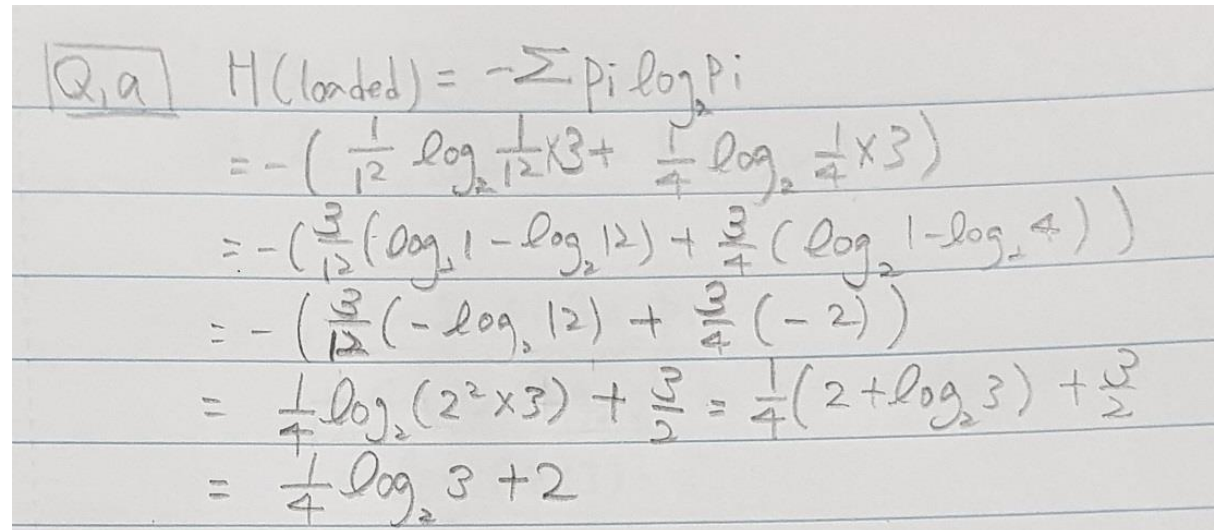 Q.a H(loaded) = -Σ pi log₂ pi
= -( 1/12 log₂ 1/12 ×3 + 1/4 log₂ 1/4 ×3 )
= -( 3/12 (log₂ 1 - log₂ 12) + 3/4 ( log₂ 1 - log₂ 4 ) )
= - ( 3/12 (- log₂ 12) + 3/4 (- 2) )
= 1/4 log₂ (2² × 3) + 3/2 = 1/4 ( 2 + log₂ 3 ) + 3/2
= 1/4 log₂ 3 + 2